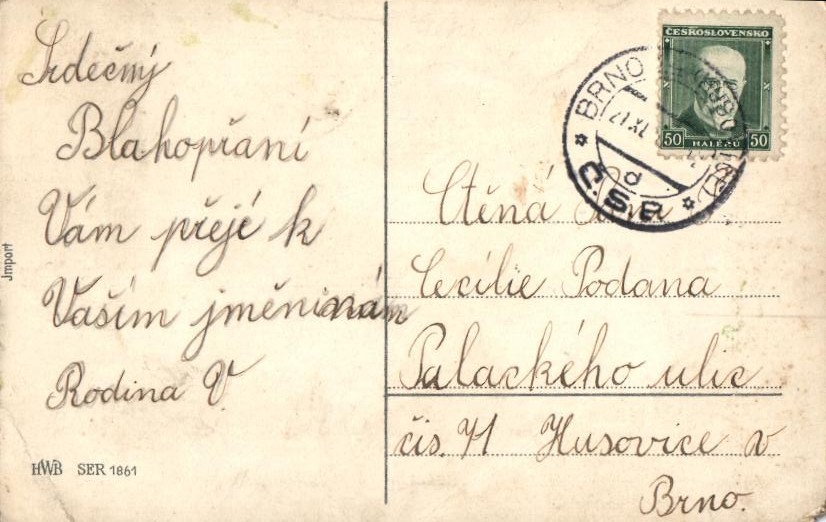 Srdečný
Blahopřaní
Vám přejé k
Vaším jměninám
Rodina V.
HWB SER 1861
Jmport
ČESKOSLOVENSKO
50 HALÉŘŮ 50
BRNO
Č.S.R
Ctěná
Cecílie Podana
Palackého ulic
čis. 71 Husovice v
Brno.